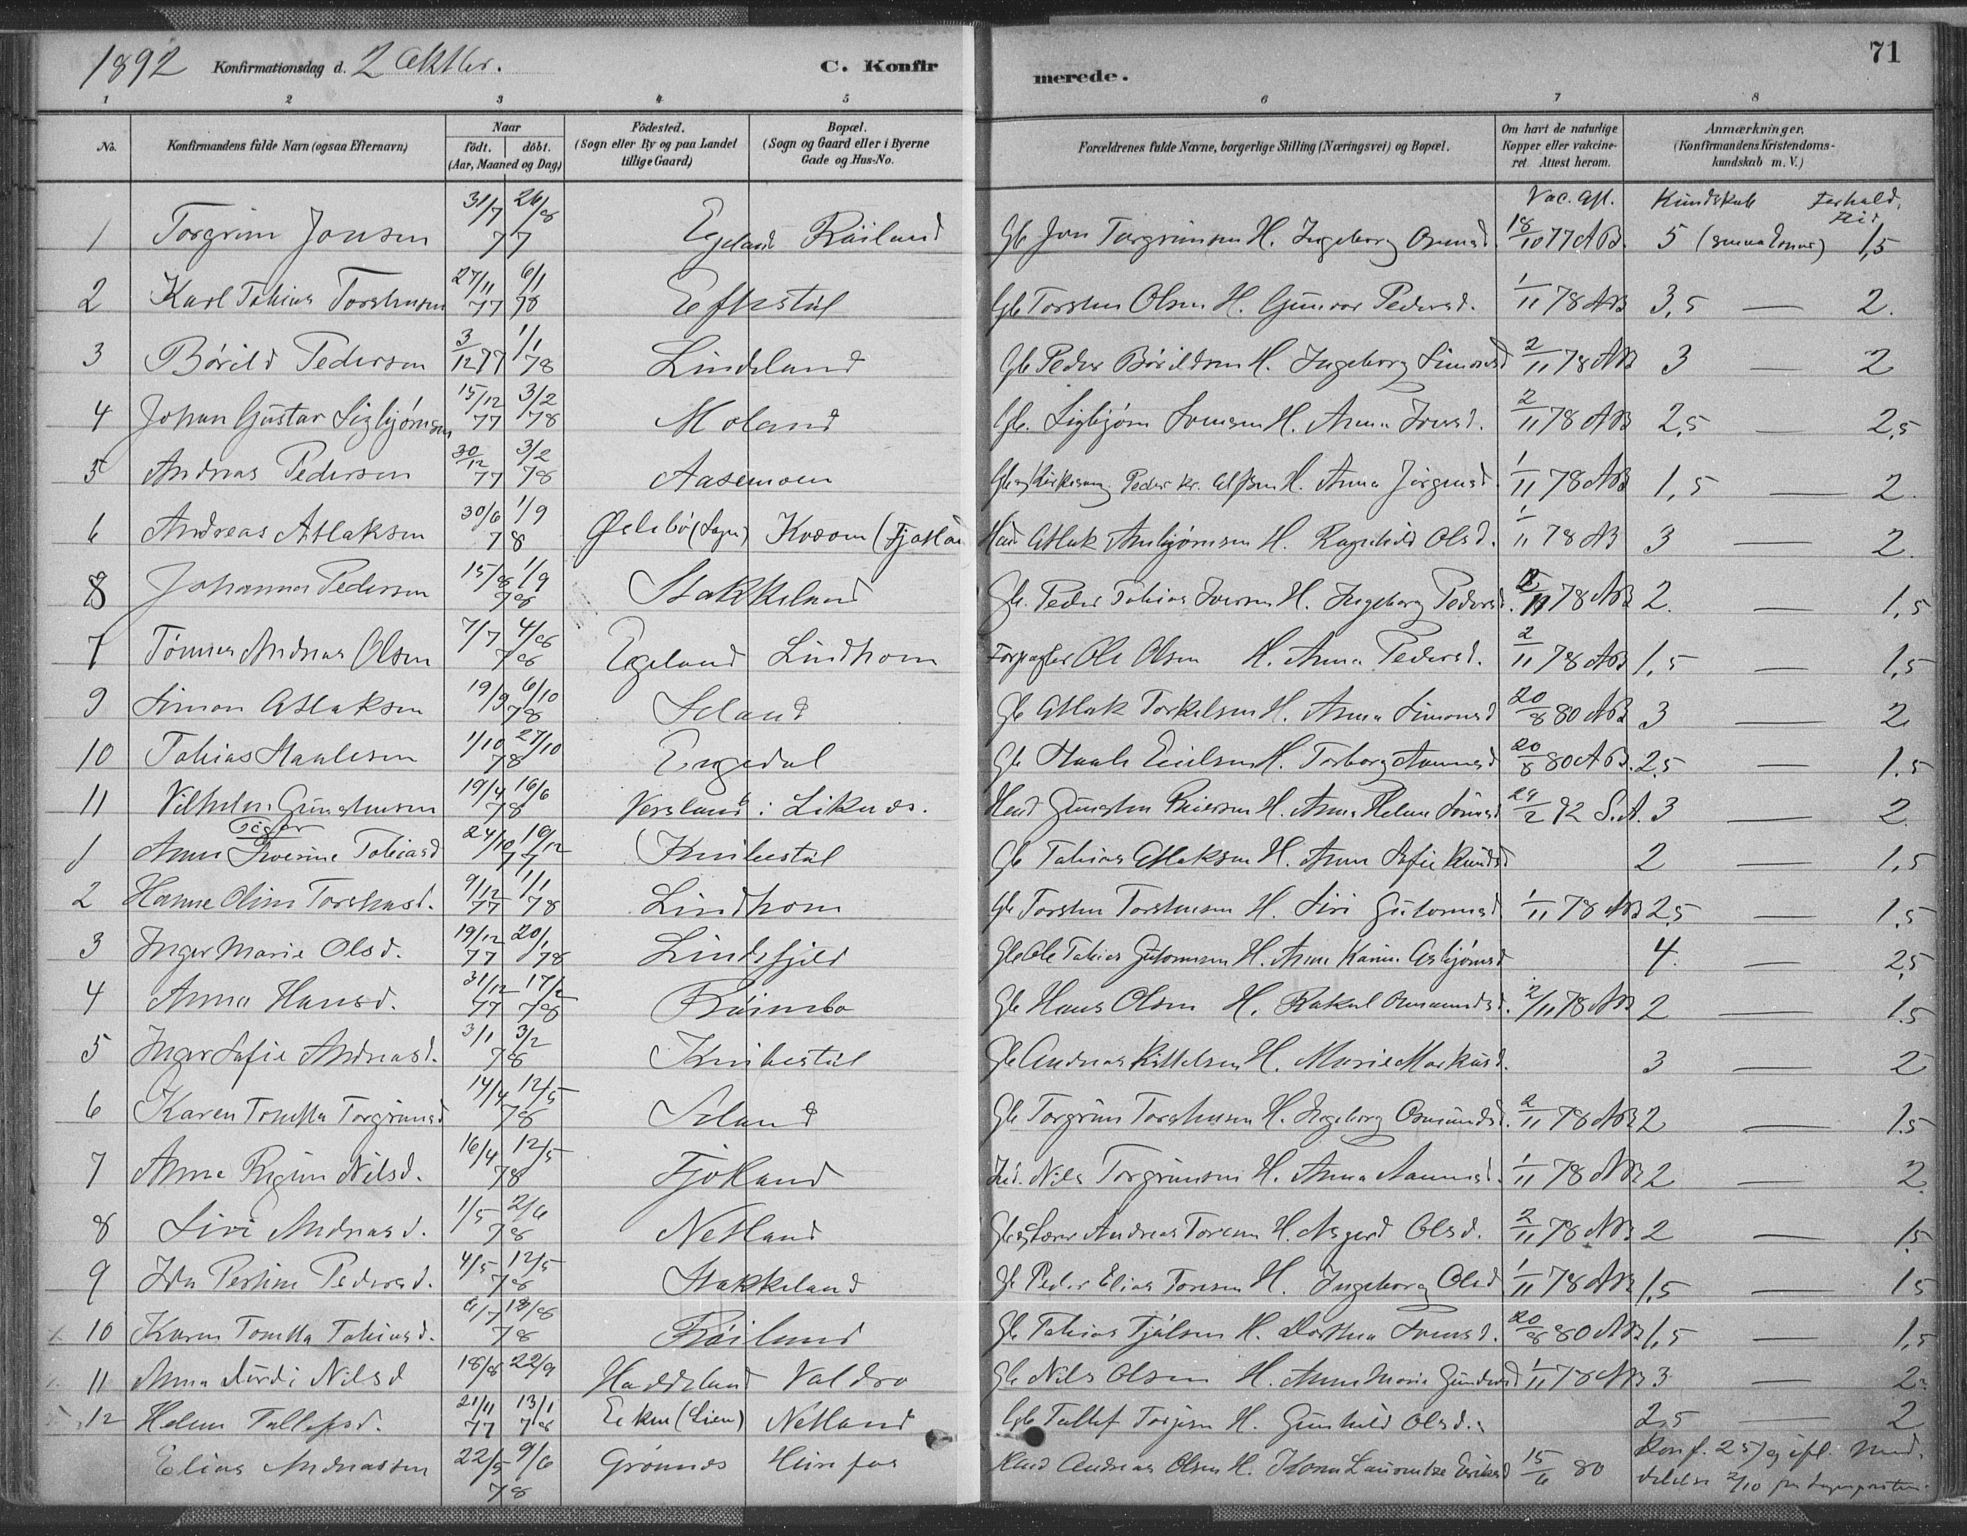 1892 Konfirmationsdag d. 2 Oktbr. C. Konfirmerede. 71
1 2 3 4 5 6 7 8
No. Konfirmandens fulde Navn (ogsaa Efternavn) Naar født. døbt. (Aar, Maaned og Dag) Fødested. (Sogn eller By og paa Landet tillige Gaard) Bopæl. (Sogn og Gaard eller i Byerne Gade og Hus-No. Forældrenes fulde Navne, borgerlige Stilling (Næringsvei) og Bopæl. Om havt de naturlige Kopper eller vakcineret. Attest herom. Anmærkninger. (Konfirmandens Kristendomskundskab m. V.)
Vac. Att. Kundskab Forhold. Flid
1 Torgrim Jonsen 31/7 26/8 77 Egeland Røiland Gb Jon Torgrimsen H. Ingeborg Osmd. 18/10 77 AB. 5 1,5
2 Karl Tobias Torstensen 27/11 77 6/1 78 Eftestøl Gb Torsten Olsen H. Gunvor Pedersd. 1/11 78 AB 3,5 — 2.
3 Børild Pedersen 3/12 77 1/1 78 Lindeland Gb Peder Børildsen H. Ingeborg Simonsd 2/11 78 AB 3 — 2
4 Johan Gustav Sigbjørnsen 15/12 77 3/2 78 Moland Gb. Sigbjørn Svensen H. Anna Iversd. 2/11 78 AB 2,5 — 2,5
5 Andreas Pedersen 30/12 77 3/2 78 Aasemoen Gb og Kirkesang. Peder Kr. H. Anna Jørgensd. 1/11 78 AB 1,5 — 2.
6 Andreas Atlaksen 30/6 1/9 78 Øslebø (Sogn) Kvæven (Fjotland Atlak Anbjørnsen H. Ragnhild Olsd. 1/11 78 AB 3 — 2.
8 Johannes Pedersen 15/8 1/9 78 Stakkeland Gb. Peder Tobias Iversen H. Ingeborg Pedersd. 78 AB 2. — 1,5
7 Tønnes Andreas Olsen 7/7 4/8 78 Egeland Lindhom Forpagter Ole Olsen H. Anna Pedersd. 2/11 78 AB 1,5 — 1,5
9 Simon Atlaksen 19/9 6/10 78 Seland Gb Atlak Torkelsen H. Anna Simonsd 20/8 80 AB 3 — 2
10 Tobias Staalesen 1/10 27/10 78 Engedal Gb Staale Eielsen H. Torborg Aanensd 20/8 80 AB. 2,5 — 1.5
11 Vilhelm Gunstensen 19/4 16/6 78 i Liknes. Gunsten H. Anna Helene 29/2 92 S.A. 3 — 2
1 Anne Tobiasd 24/10 16/12 77 Knibestøl Gb Tobias Atlaksen H. Anne Sofie Knudsd 2 — 1,5
2 Hanne Oline Torstensd. 9/12 77 1/1 78 Lindhom Gb Torsten Torstensen H. Siri Guttormsd 1/11 78 AB 2,5 — 1.5
3 Inger Marie Olsd. 19/12 77 20/1 78 Lindefjeld Gb Ole Tobias Guttormsen H. Anne Karine Asbjørnsd 4. — 2,5
4 Anna Hansd. 31/12 77 17/2 78 Røinebo Gb Hans Olsen H. Rakel Osmundsd. 2/11 78 AB 2 — 1.5
5 Inger Sofie Andreasd. 3/1 3/2 78 Knibestøl Gb Andreas Kittelsen H. Marie Markusd. 3 — 2
6 Karen Tonetta Torgrimsd 14/4 12/5 78 Seland Gb Torgrim Torstensen H. Ingeborg Osmundsd. 2/11 78 AB 2 — 1.5
7 Anne Regine Nilsd. 16/4 12/5 78 Fjotland Ind. Nils Torgrimsen H. Anna Aanensd. 1/11 78 AB 2 — 2.
8 Siri Andreasd. 1/5 2/6 78 Netland Gb og Lærer Andreas Toresen H. Asgerd Olsd. 2/11 78 AB 2 — 1.5
9 Ida Pertine Pedersd. 4/5 12/5 78 Stakkeland Gb Peder Elias Toresen H. Ingeborg Olsd 1/11 78 AB 1,5 — 1.5
10 Karen Tonetta Tobiasd. 6/7 18/8 78 Røiland Gb Tobias H. Dorthea Svensd. 20/8 80 AB 1,5 — 1,5
11 Anna Nilsd 18/8 22/9 Haddeland Valdro Gb Nils Olsen H. Anne Marie 1/11 78 AB 3 — 2.
12 Helene Tallefsd. 21/11 77 13/1 78 Eeken (Lien) Netland Gb Tallef Torjesen H. Gunhild Olsd. 2,5 — 2
Elias Andreassen 22/5 9/6 78 Grønnes Andreas Olsen H. 15/6 80 Konf. 25/9 ifl. Meddelelse 2/10 fra Sognepresten.